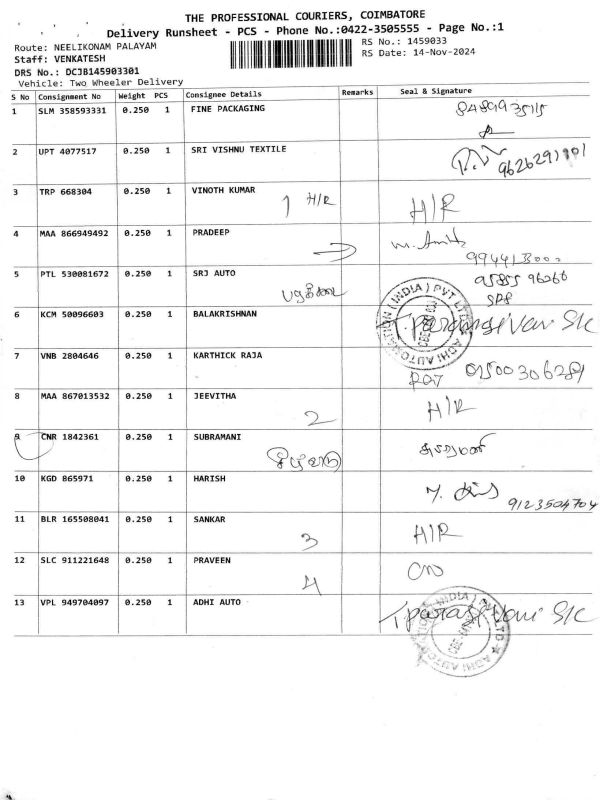 THE PROFESSIONAL COURIERS, COIMBATORE
Delivery Runsheet - PCS - Phone No.:0422-3505555 - Page No.:1
Route: NEELIKONAM PALAYAM
RS No.: 1459033
Staff: VENKATESH
RS Date: 14-Nov-2024
DRS No.: DCJB145903301
Vehicle: Two Wheeler Delivery
S No Consignment No Weight PCS Consignee Details Remarks Seal & Signature
1 SLM 358593331 0.250 1 FINE PACKAGING
2 UPT 4077517 0.250 1 SRI VISHNU TEXTILE
3 TRP 668304 0.250 1 VINOTH KUMAR
1 H/R H/R
4 MAA 866949492 0.250 1 PRADEEP
5 PTL 530081672 0.250 1 SRJ AUTO
6 KCM 50096603 0.250 1 BALAKRISHNAN
ADHI AUTOMATION (INDIA) PVT LTD
7 VNB 2804646 0.250 1 KARTHICK RAJA
8 MAA 867013532 0.250 1 JEEVITHA
2 H/R
9 CNR 1842361 0.250 1 SUBRAMANI
10 KGD 865971 0.250 1 HARISH
9123504704
11 BLR 165508041 0.250 1 SANKAR
3 H/R
12 SLC 911221648 0.250 1 PRAVEEN
4
13 VPL 949704097 0.250 1 ADHI AUTO